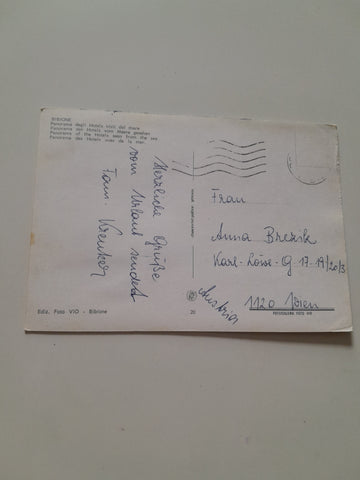 BIBIONE
Panorama degli Hotels visti dal mare
Panorama der Hotels vom Meere gesehen
Panorama of the Hotels seen from the sea
Panorama des Hotels vues de la mer
Herzliche Grüße
vom Urlaub sendet
Fam.
Frau
Anna Brezik
Karl-Löwe-G 17-19/20/3
1120 Wien
Austria
Ediz. Foto VIO - Bibione
20